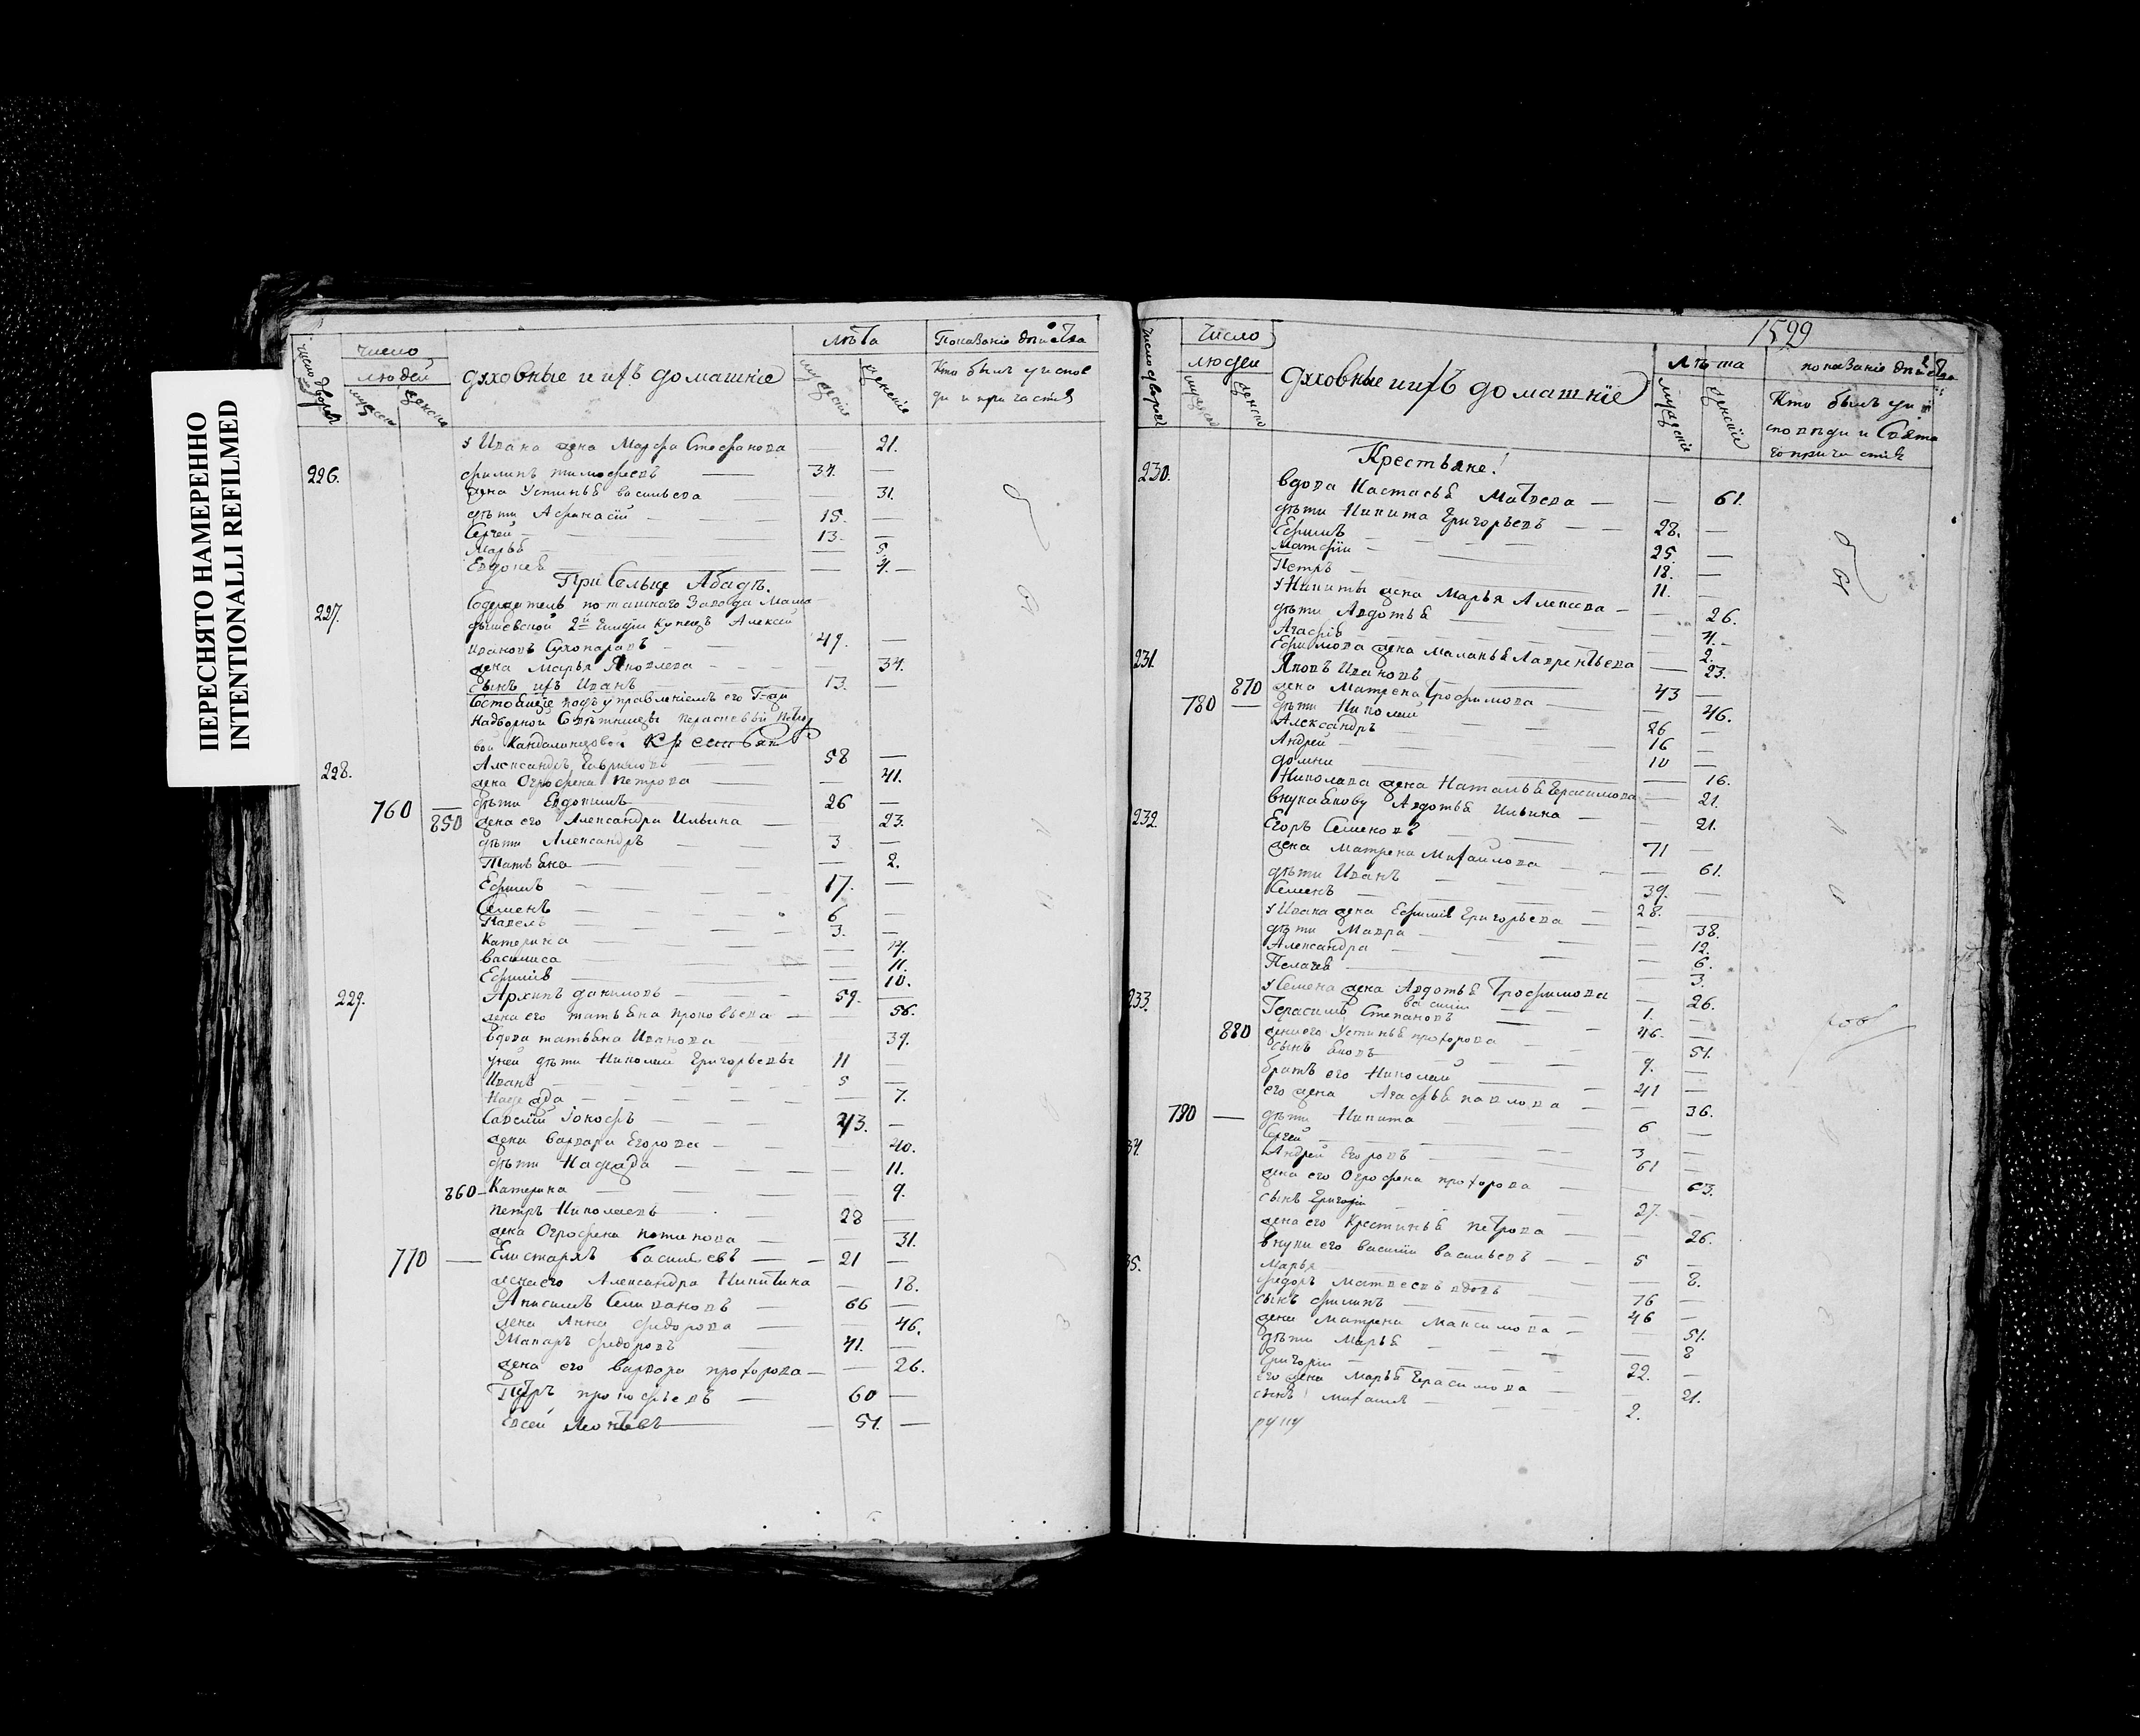 ПЕРЕСНЯТО НАМЕРЕННО
INTENTIONALLI REFILMED
число дворовъ
число
людей
мужеска
женска
духовные и ихъ домашніе
лѣта
мужескіе
женскіе
Показаніе дѣйства
Кто былъ у испов
ди и причастія
у Ивана жена Марфа Стефанова 21.
226. Филипъ тимофеевъ 34.
жена Устинья васильева 31.
дѣти Афанасій 15.
Сергей 13.
Марья 5.
Евдокея 4.
При Сельце Абадъ.
227. Содержатель поташнаго Завода Мама
дышевской 2й Гилдіи Купецъ Алексей
Ивановъ Сухопаровъ 49.
жена Марья Яковлева 34.
сынъ ихъ Иванъ 13.
Состоящіе подъ управленіемъ его Г-жи
Надворной Советницы
вой Кандалинцовой Крестьяне
228. Александръ Гавриловъ 58
жена Огрофена Петрова 41.
760 дѣти Евдокимъ 26
850 жена его Александра Ильина 23.
дѣти Александръ 3
Татьяна 2.
Ефимъ 17.
Семенъ 6
Павелъ 3.
Катерина 14.
василиса 11.
Ефимія 10.
229. Архипъ даниловъ 59.
жена его татьяна прокофьева 56.
вдова татьяна Иванова 39.
у ней дѣти Николай Григорьевы 11
Иванъ 5
Надежда 7.
Савелій Іокофъ 43.
жена варвара Егорова 40.
дѣти Надежда 11.
860 Катерина 9.
петръ Николаевъ 28
жена Огрофена потапова 31.
770 Елистархъ васильевъ 21
жена его Александра Никитина 18.
Анисимъ Селивановъ 66
жена Анна федорова 46.
Макаръ федоровъ 41.
жена его варвара прохорова 26.
Петръ прокофьевъ 60
Евсей Леонтьевъ 51.
1599
число дворовъ
число
людей
мужеска
женска
духовные и ихъ домашніе
лѣта
мужескіе
женскіе
показаніе дѣйства
Кто былъ у и
споведи и Свята
го причастія
Крестьяне!
230. вдова Настасья Матвева 61.
дѣти Никита Григорьевъ 28.
Ефимъ 25.
Матфій 18.
Петръ 11.
у Никиты жена Марья Алексева 26.
дѣти Авдотья 4.
Агафія 2.
Ефимова жена Маланья Лаврентьева 23.
231. Яковъ Ивановъ 43
870 жена Матрена Трофимова 46.
780 дѣти Николай 26
Александръ 16
Андрей 10
домна 16.
Николава жена Наталья Герасимова 21.
внука Якову Авдотья Ильина 21.
232. Егоръ Семеновъ 71
жена Матрена Михайлова 61.
дѣти Иванъ 39.
Семенъ 28.
у Ивана жена Ефимія Григорьева 38.
дѣти Мавра 12.
Александра 6.
Пелагея 3.
у Семена жена Авдотья Трофимова 26.
василій 1.
233. Герасимъ Степановъ 46.
880 жена его Устинья прохорова 51.
сынъ Яковъ 9.
братъ его Николай 41
его жена Агафья павлова 36.
790 дѣти Никита 6
Сергей 3
34. Андрей Егоровъ 61
жена его Огрофена прохорова 63.
сынъ Григорій 27.
жена его Крестинья Петрова 26.
внуки его василій васильевъ 5
Марья 8.
35. федоръ Матвеевъ вдовъ 76
сынъ филипъ 46
жена Матрена Максимова 51.
дѣти Марья 8
Григорій 22.
его жена Марья Герасимова 21.
сынъ Михаилъ 2.